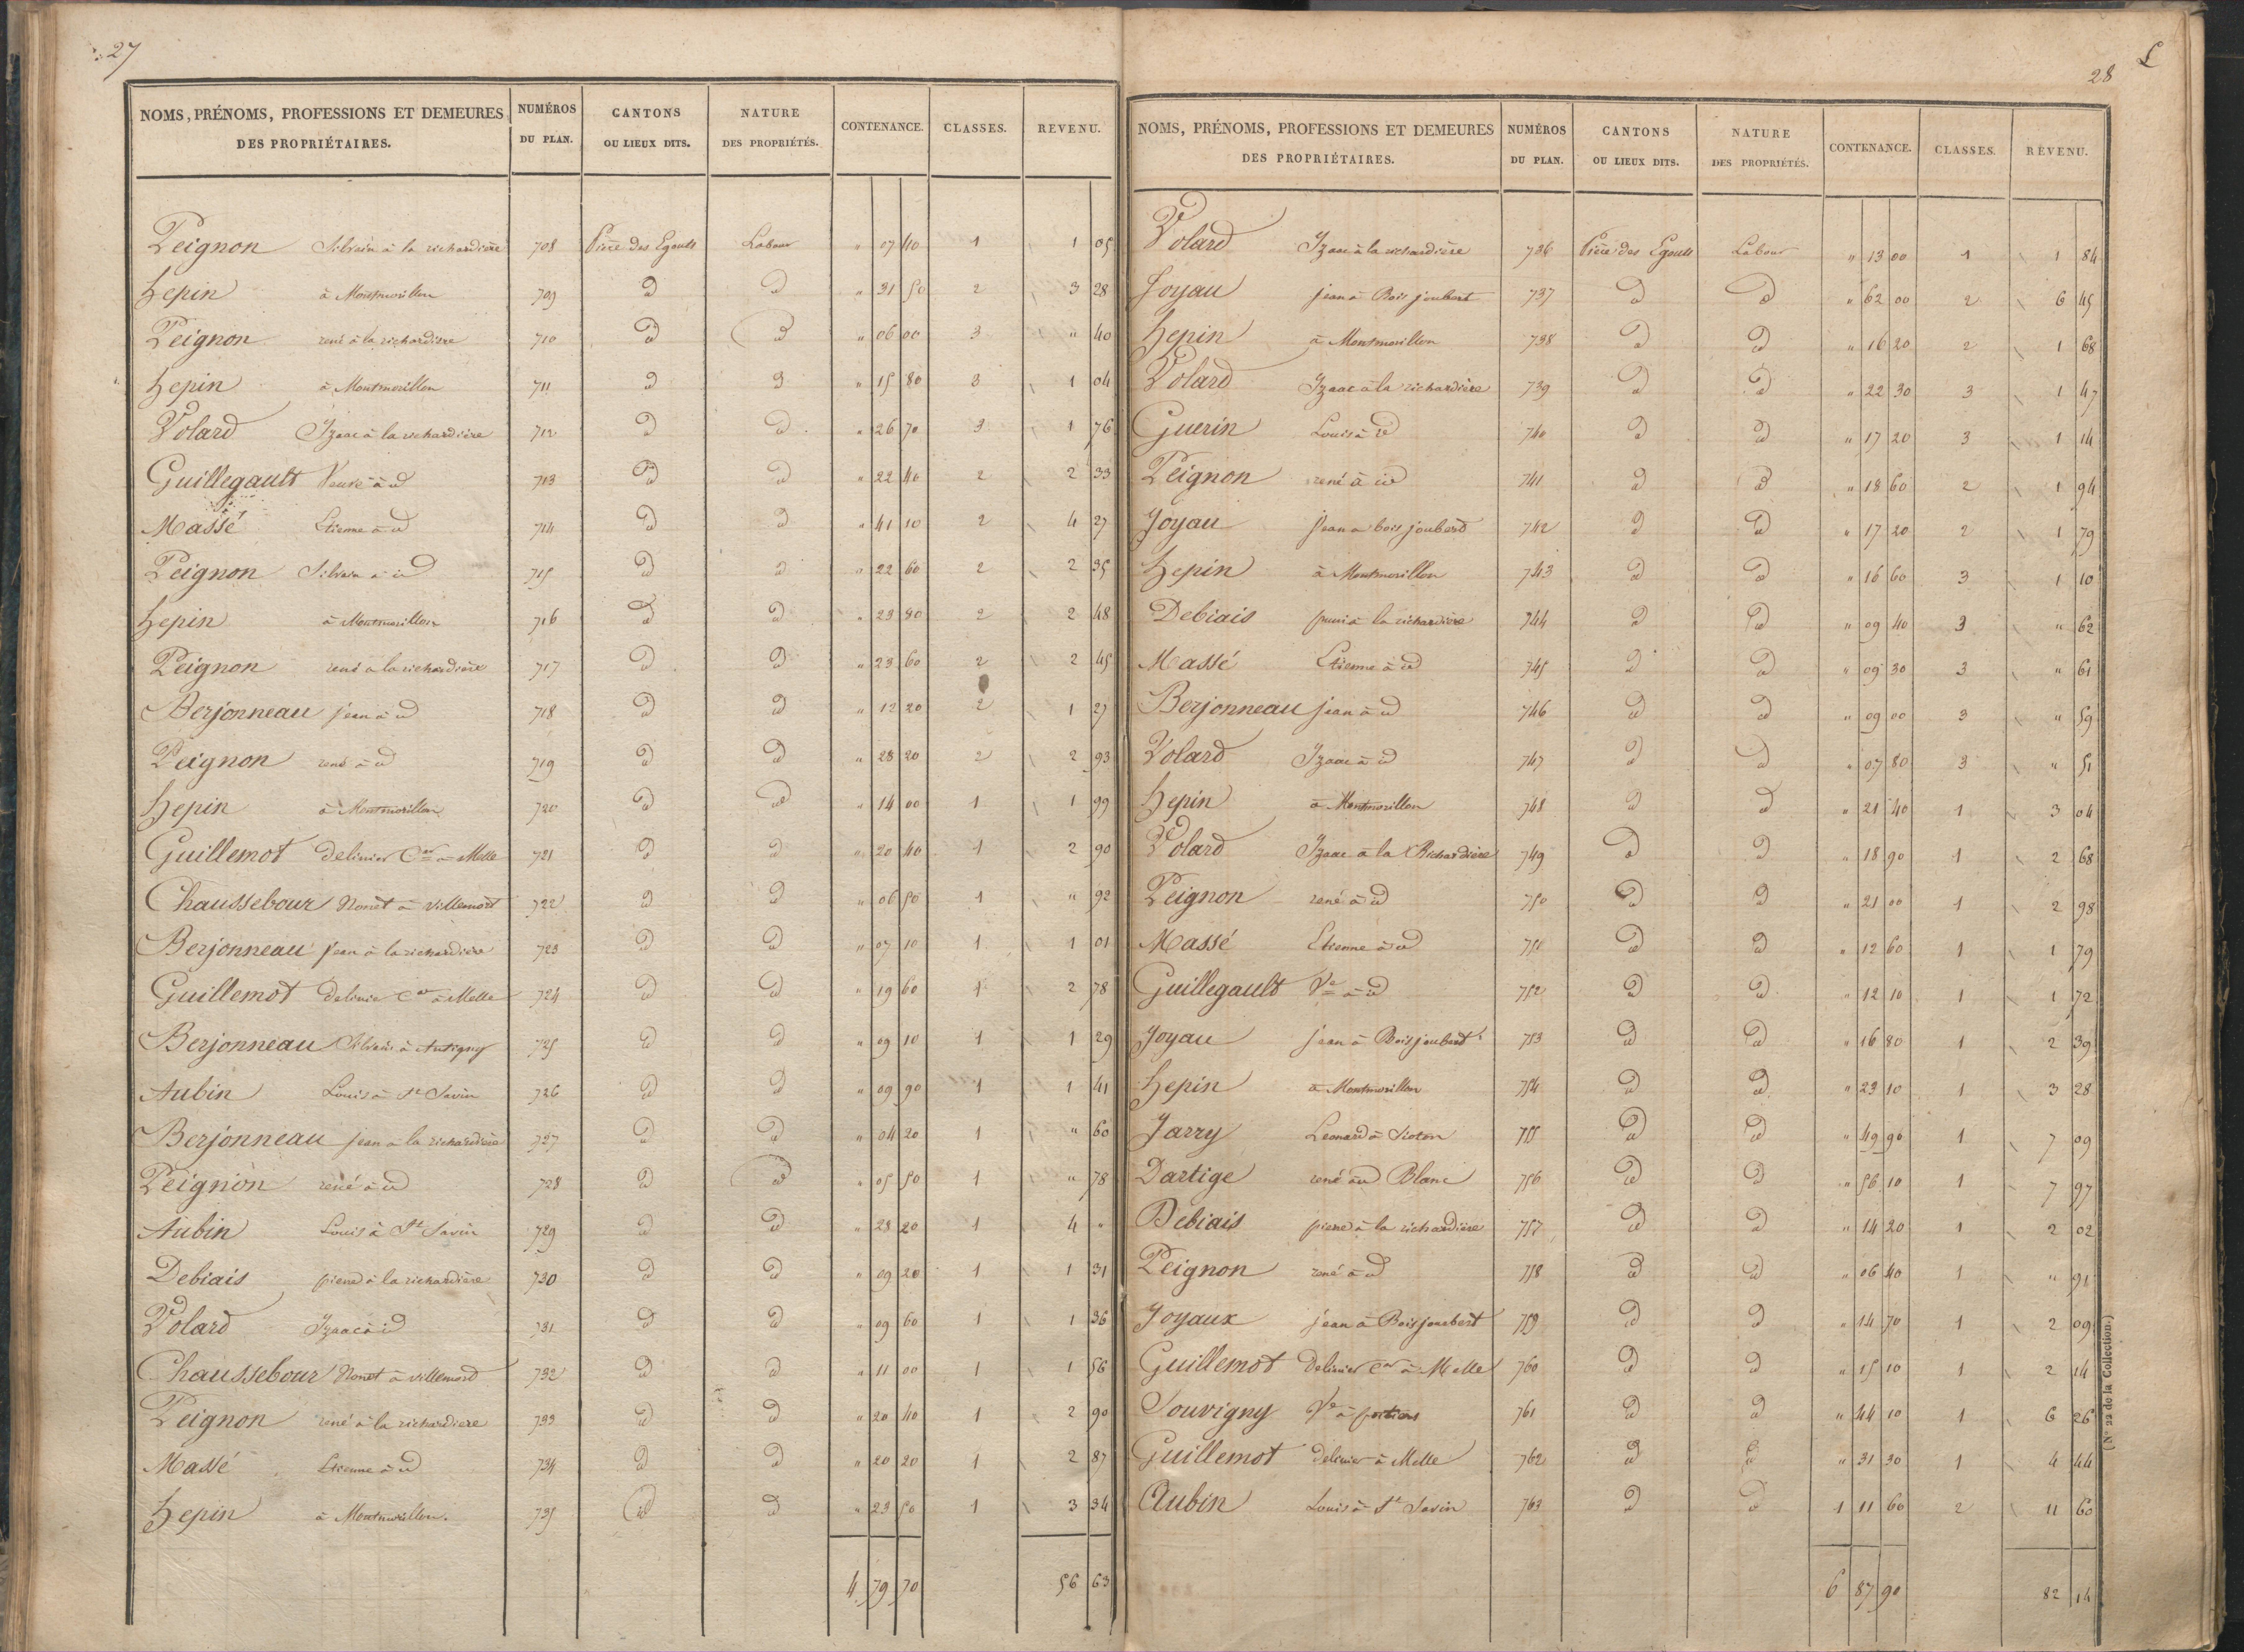 27
NOMS, PRÉNOMS, PROFESSIONS ET DEMEURES DES PROPRIÉTAIRES. NUMÉROS DU PLAN. CANTONS OU LIEUX DITS. NATURE DES PROPRIÉTÉS. CONTENANCE. CLASSES. REVENU.
Peignon Silvain à la richardière 708 Pièce des Egouts Labour " 07 40 1 1 05
Hepin à Montmorillon 709 id id " 31 50 2 3 28
Peignon rené à la richardière 710 id id " 06 00 3 " 40
Hepin à Montmorillon 711 id id " 15 80 3 1 04
Volard Izaac à la richardière 712 id id " 26 70 3 1 76
Guillegault Veuve à id 713 id id " 22 40 2 2 33
Massé Etienne à id 714 id id " 41 10 2 4 27
Peignon Silvain à id 715 id id " 22 60 2 2 35
Hepin à Montmorillon 716 id id " 23 80 2 2 48
Peignon rené à la richardière 717 id id " 23 60 2 2 45
Berjonneau jean à id 718 id id " 12 20 2 1 27
Peignon rené à id 719 id id " 28 20 2 2 93
Hepin à Montmorillon 720 id id " 14 00 1 1 99
Guillemot delinier Cer à Melle 721 id id " 20 40 1 2 90
Chaussebour Nonet à Villemort 722 id id " 06 50 1 " 92
Berjonneau jean à la richardière 723 id id " 07 10 1 1 01
Guillemot delinier Cer à Melle 724 id id " 19 60 1 2 78
Berjonneau Silvain à Antigny 725 id id " 09 10 1 1 29
Aubin Louis à St Savin 726 id id " 09 90 1 1 41
Berjonneau jean à la richardière 727 id id " 04 20 1 " 60
Peignon rené à id 728 id id " 05 50 1 " 78
Aubin Louis à St Savin 729 id id " 28 20 1 4 "
Debiais pierre à la richardière 730 id id " 09 20 1 1 31
Volard Izaac à id 731 id id " 09 60 1 1 36
Chaussebour Nonet à villemord 732 id id " 11 00 1 1 56
Peignon rené à la richardiere 733 id id " 20 40 1 2 90
Massé Etienne à id 734 id id " 20 20 1 2 87
Hepin à Montmorillon. 735 id id " 23 50 1 3 34
4 79 70 56 63
28
NOMS, PRÉNOMS, PROFESSIONS ET DEMEURES DES PROPRIÉTAIRES. NUMÉROS DU PLAN. CANTONS OU LIEUX DITS. NATURE DES PROPRIÉTÉS. CONTENANCE. CLASSES. REVENU.
Volard Izaac à la richardière 736 Pièce des Egouts Labour " 13 00 1 1 84
Joyau jean à Bois joubert 737 id id " 62 00 2 6 45
Hepin à Montmorillon 738 id id " 16 20 2 1 68
Volard Izaac à la richardière 739 id id " 22 30 3 1 47
Guerin Louis à id 740 id id " 17 20 3 1 14
Peignon rené à id 741 id id " 18 60 2 1 94
Joyau jean a bois joubert 742 id id " 17 20 2 1 79
Hepin à Montmorillon 743 id id " 16 60 3 1 10
Debiais à la richardière 744 id id " 09 40 3 " 62
Massé Etienne à id 745 id id " 09 30 3 " 61
Berjonneau jean à id 746 id id " 09 00 3 " 59
Volard Izaac à id 747 id id " 07 80 3 " 51
Hepin à Montmorillon 748 id id " 21 40 1 3 04
Volard Izaac à la Richardière 749 id id " 18 90 1 2 68
Peignon rené à id 750 id id " 21 00 1 2 98
Massé Etienne à id 751 id id " 12 60 1 1 79
Guillegault Ve à id 752 id id " 12 10 1 1 72
Joyau jean à Bois joubert 753 id id " 16 80 1 2 39
Hepin à Montmorillon 754 id id " 23 10 1 3 28
Jarry Leonard à 755 id id " 49 90 1 7 09
Dartige rené au Blanc 756 id id " 56 10 1 7 97
Debiais pierre à la richardière 757 id id " 14 20 1 2 02
Peignon rené à id 758 id id " 06 40 1 " 91
Joyaux jean à Bois joubert 759 id id " 14 70 1 2 09
Guillemot delinier Cer à Melle 760 id id " 15 10 1 2 14
Souvigny Ve à poitiers 761 id id " 44 10 1 6 26
Guillemot delinier à Melle 762 id id " 31 30 1 4 44
Aubin Louis à St Savin 763 id id 1 11 60 2 11 60
6 87 90 82 14
(N° 22 de la Collection.)